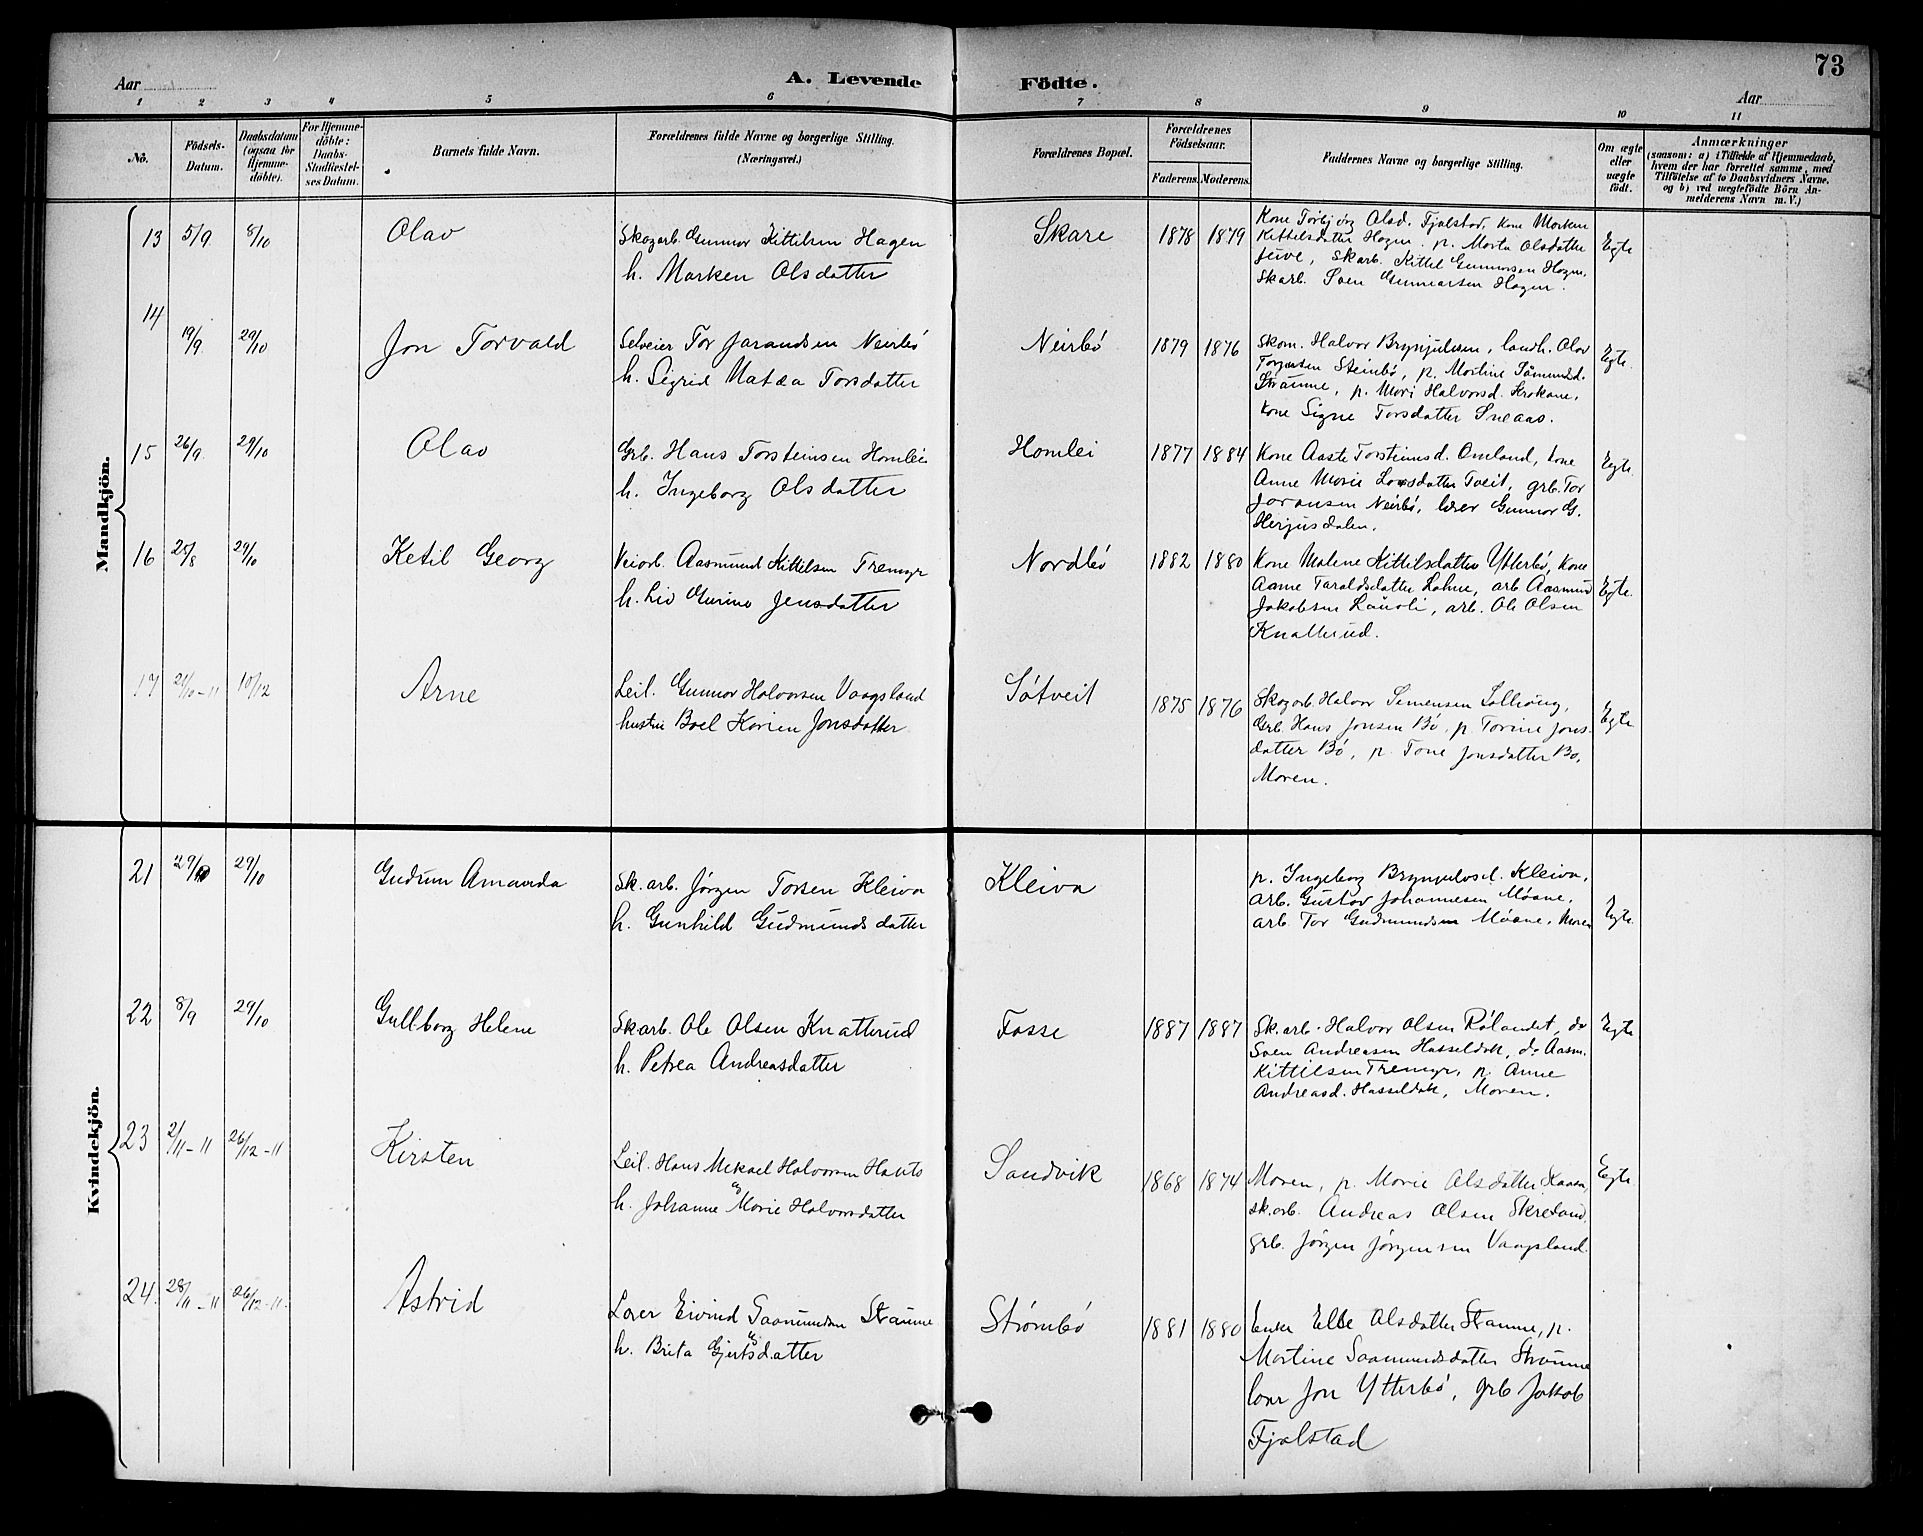 73
Aar
A. Levende Födte.
Aar
1 2 3 4 5 6 7 8 9 10 11
No.
Födsels-Datum.
Daabsdatum (ogsaa for Hjemme-döbte).
For Hjemme-döbte: Daabs-Stadfæstel-ses Datum.
Barnets fulde Navn.
Forældrenes fulde Navne og borgerlige Stilling. (Næringsvei.)
Forældrenes Bopæl.
Forældrenes Födselsaar.
Faderens. Moderens.
Faddernes Navne og borgerlige Stilling.
Om ægte eller uægte födt.
Anmærkninger
(saasom: a) i Tilfælde af Hjemmedaab,
hvem der har forrettet samme, med
Tilföielse af to Daabsvidners Navne.
og b) ved uægtefödte Börn An-
melderens Navn m. V.)
Mandkjön.
13 5/9 8/10 Olav
Skogarb. Gunnar Kittilsen Hagen
h. Marken Olsdatter
Skare 1878 1879
Kone Torbjørg Olsd. Fjalstad, kone Marken
Kittilsdatter Hagen. p. Marta Olsdatter
Juve, skarb. Kittel Gunnarsen Hagen,
skarb. Sven Gunnarsen Hagen.
Egte
14 19/9 29/10 Jon Torvald
Selveier Tor Jarandsen Neirbø
h. Sigrid Matea Torsdatter
Neirbø 1879 1876
Skom. Halvor Brynjulsen, landh. Olav
Torjusen Steinbø, p. Martine Såmundd.
Straume, p. Mari Halvorsd. Krokane,
kone Signe Torsdatter Sneaas.
Egte.
15 26/9 29/10 Olav
Grb. Hans Torsteinsen Homlei
h. Ingeborg Olsdatter
Homlei 1877 1884
Kone Aaste Torsteinsd. Omland, kone
Anne Marie Larsdatter Tveit, grb. Tor
Jaransen Neirbø, lærer Gunnar G.
Herjusdalen.
Egte.
16 25/8 29/10 Ketil Georg
Veiarb. Aasmund Kittilsen Tremyr
h. Liv Gurine Jensdatter
Nordbø 1882 1880
Kone Malene Kittilsdatter Ytterbø, kone
Anne Taraldsdatter Lahne, arb Aasmund
Jakobsen Lauvli, arb. Ole Olsen
Knatterud.
Egte.
17 21/10-11 10/12 Arne
Leil. Gunnar Halvorsen Vaagsland
hustru Boel Karine Jonsdatter
Søtveit 1875 1876
Skogarb. Halvor Simensen Solhaug,
Grb. Hans Jonsen Bø, p. Torine Jons-
datter Bø, p. Tone Jonsdatter Bø,
Moren.
Egte
Kvindekjön.
21 29/10 Gudrun Amanda
Sk.arb. Jørgen Torsen Kleiva
h. Gunhild Gudmundsdatter
Kleiva
p. Ingeborg Brynjulvsd. Kleiva,
arb. Gustav Johannesen Moane,
arb. Tor Gudmundsen Moane, Moren
Egte.
22 8/9 29/10 Gullborg Helene
Skarb. Ole Olsen Knatterud
h. Petrea Andreasdatter
Fosse 1887 1887
Sk.arb. Halvor Olsen Rølandet, do
Sven Andreasen Hasseldok, do Aasm.
Kittilsen Tremyr, p. Anne
Andreasd. Hasseldok, Moren.
Egte
23 2/11-11 26/12-11 Kirsten
Leil. Hans Mikael Halvorsen Hants
h. Johanne Marie Halvorsdatter
Sandvik 1868 1874
Moren, p. Marie Olsdatter
sk.arb. Andreas Olsen Skreland
grb. Jørgen Jørgensen Vaagsland.
Egte.
24. 28/11-11 26/12-11. Astrid
Lærer Eivind Saamundsen Straume
h. Brita Gjertsdatter
Strømbø 1881 1880
Enke Elbe Olsdatter Straume, p.
Martine Saamundsdatter Straume
lærer Jon Ytterbø, grb Jakob
Fjalstad